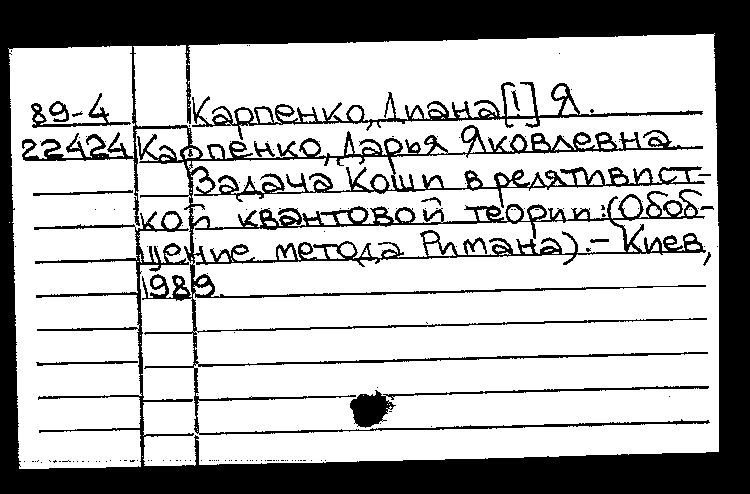 89-4 Карпенко, Диана [!] Я.
22424 Карпенко, Дарья Яковлевна.
Задача Коши в релятивист-
кой квантовой теории: (Обоб-
щение метода Римана). - Киев,
1989.